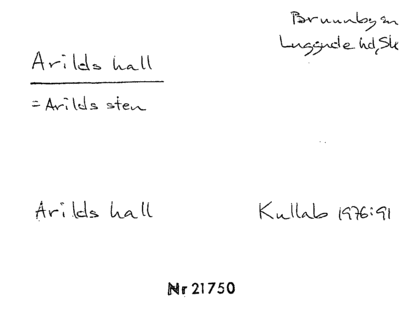 Brunnby sn
Luggude hd, Sk
Arilds hall
= Arilds sten
Arilds hall
Kullab 1976:91
Nr 21750